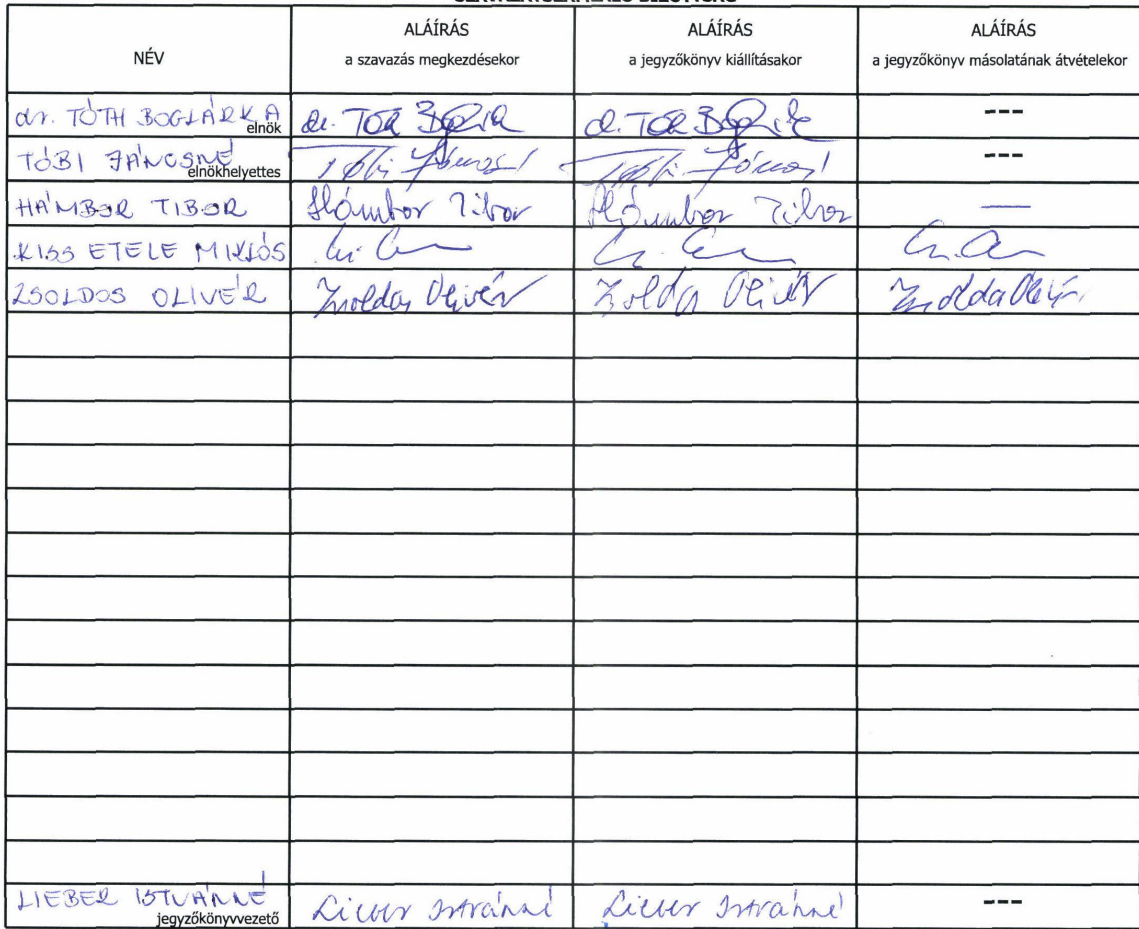 NÉV
ALÁÍRÁS
a szavazás megkezdésekor
ALÁÍRÁS
a jegyzőkönyv kiállításakor
ALÁÍRÁS
a jegyzőkönyv másolatának átvételekor
dr. TÓTH BOGLÁRKA elnök ---
TÓBI JÁNOSNÉ elnökhelyettes ---
HÁMBOR TIBOR Hámbor Tibor Hámbor Tibor —
KISS ETELE MIKLÓS
ZSOLDOS OLIVÉR Zsoldos Olivér Zsoldos Olivér Zsoldos Olivér
LIEBER ISTVÁNNÉ jegyzőkönyvvezető Lieber Istvánné Lieber Istvánné ---